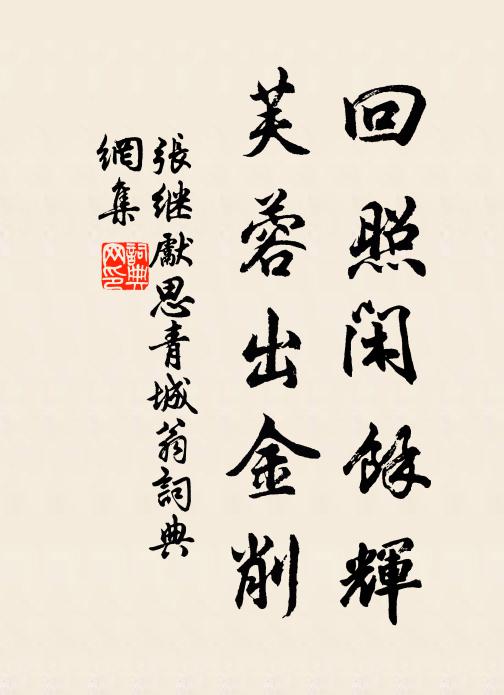 回照閑餘輝
芙蓉出金削
張继獻思青城翁詞典
網集
詞典
网印